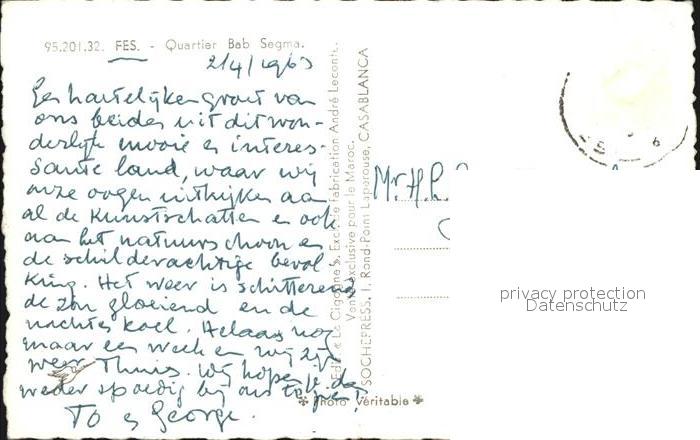 95.201.32. FES. - Quartier Bab Segma.
2/4/1963
Een hartelijken groet van
ons beiden uit dit won-
derlijk mooie en interes-
sante land, waar wij
onze oogen uitkijken aan
al de Kunstschatten en ook
aan het natuurschoon en
de schilderachtige bevol
king. Het weer is schitterend
de zon gloeiend en de
nachten koel. Helaas nog
maar een week en wij zijn
weer Thuis. Wij hopen je dan
weder spoedig bij ons te
To en George.
Edité par La Cigogne S. Exclusive fabrication André Leconte.
Vente exclusive pour le Maroc.
SOCHEPRESS, 1, Rond-Point Lapérouse, CASABLANCA
Photo Véritable
Mr. H.
privacy protection
Datenschutz